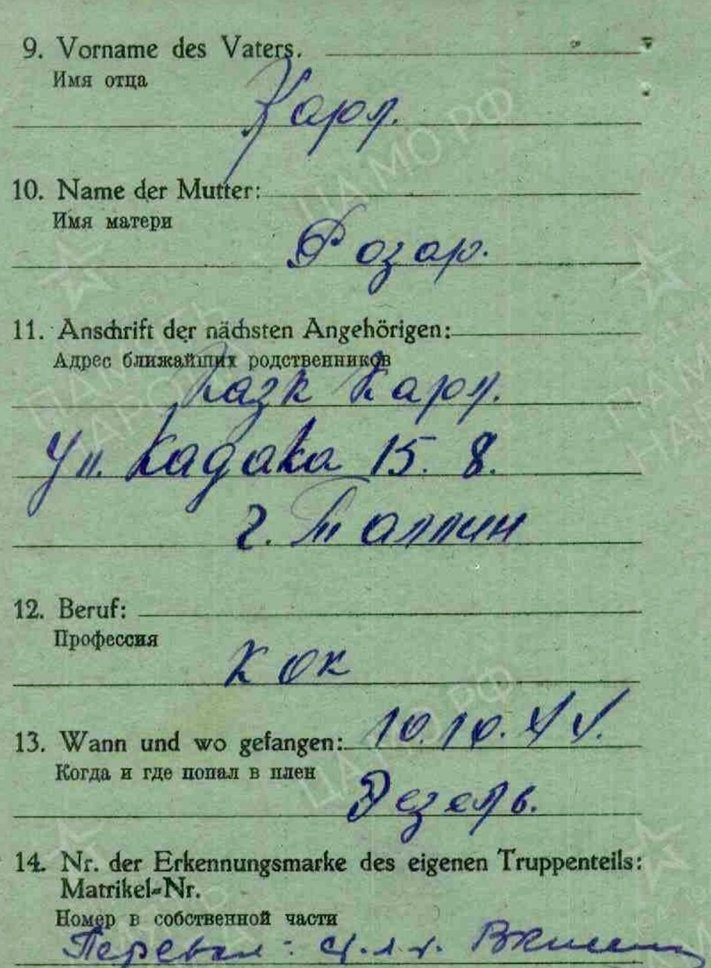 9. Vorname des Vaters.
Имя отца
Карл.
10. Name der Mutter:
Имя матери
Розар.
11. Anschrift der nächsten Angehörigen:
Адрес ближайших родственников
Казк Карл.
Ул. Кадака 15. 8.
г. Таллин
12. Beruf:
Профессия
Кок
13. Wann und wo gefangen: 10.10.44.
Когда и где попал в плен
Эзель.
14. Nr. der Erkennungsmarke des eigenen Truppenteils:
Matrikel-Nr.
Номер в собственной части
Перевел: